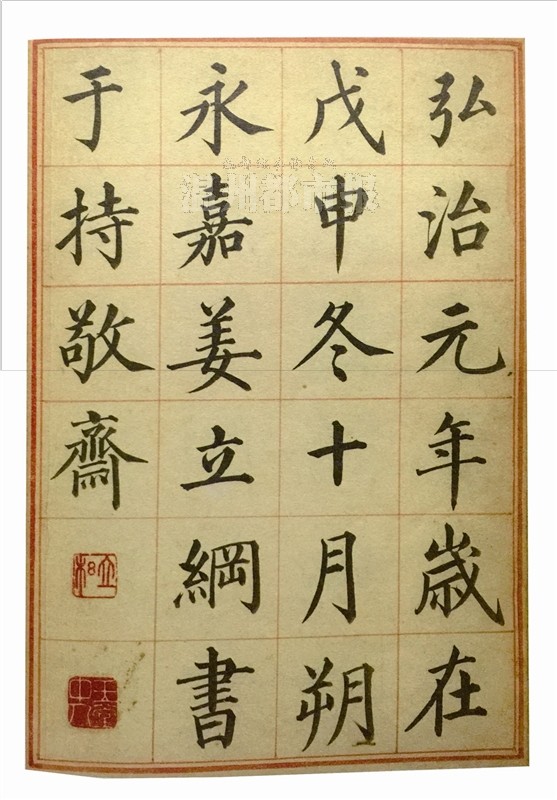 弘治元年歲在
戊申冬十月朔
永嘉姜立綱書
于持敬齋
温州都市报